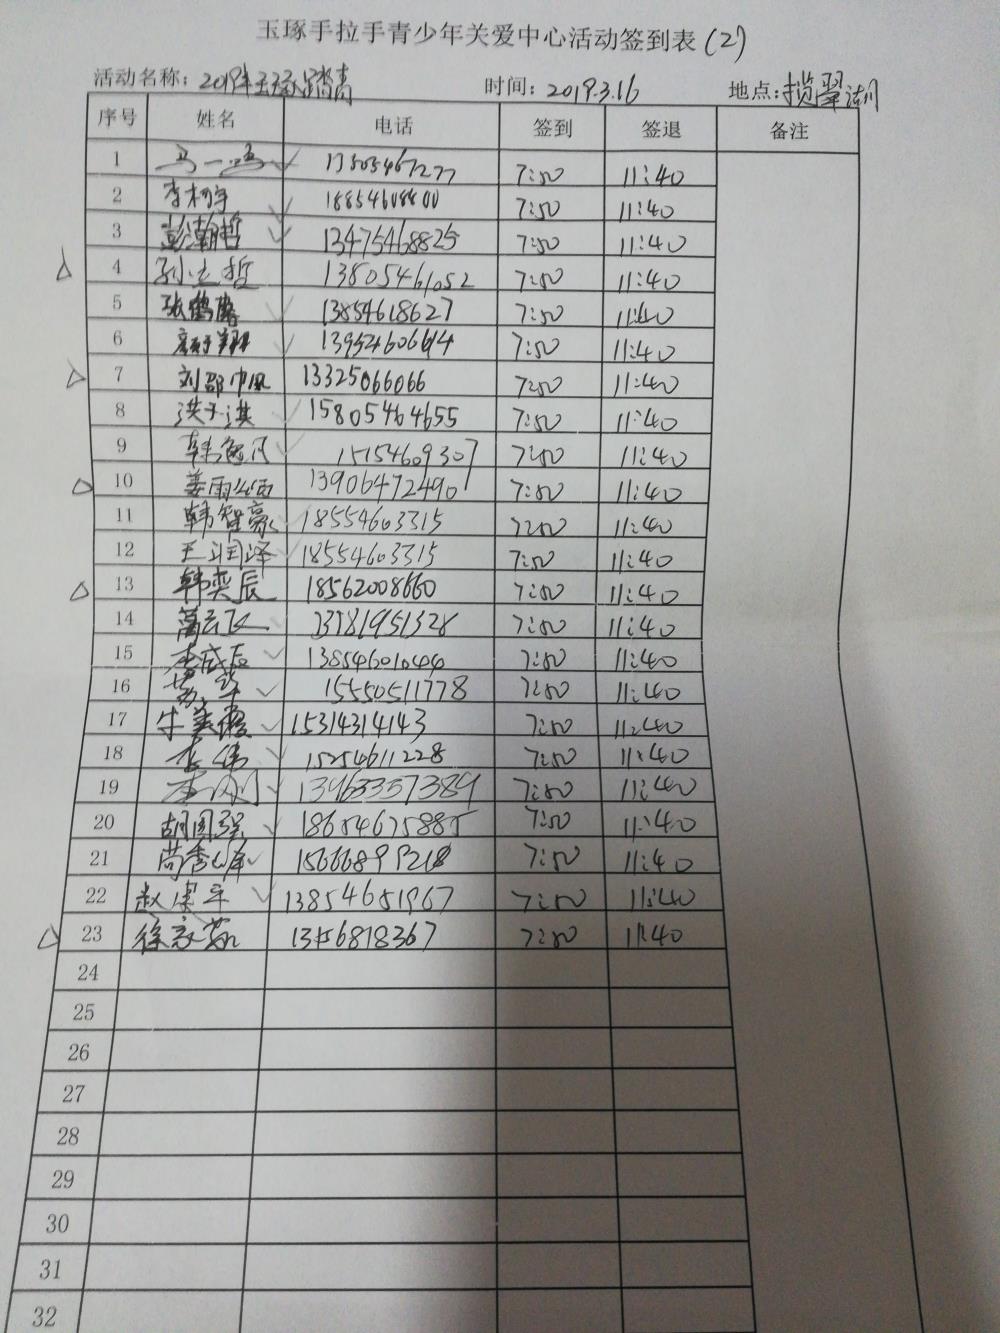 玉琢手拉手青少年关爱中心活动签到表(2)
活动名称: 2019年玉琢踏青 时间: 2019.3.16 地点: 揽翠湖
序号 姓名 电话 签到 签退 备注
1 马一鸣 7:50 11:40
2 李柯宇 18854608800 7:50 11:40
3 彭瀚哲 13475468825 7:50 11:40
4 孙立哲 13805461052 7:50 11:40
5 张鹤腾 13854618627 7:50 11:40
6 7:50 11:40
7 刘邵中凤 13325066066 7:50 11:40
8 洪子淇 15805464655 7:50 11:40
9 韩逸凡 15154609307 7:50 11:40
10 姜雨 13906472490 7:50 11:40
11 韩智豪 18554603315 7:50 11:40
12 王润泽 18554603315 7:50 11:40
13 韩奕辰 18562008660 7:50 11:40
14 葛云飞 7:50 11:40
15 李成辰 13854601044 7:50 11:40
16 15550511778 7:50 11:40
17 牛美霞 15314314143 7:50 11:40
18 李伟 15254611228 7:50 11:40
19 李刚 13963357389 7:50 11:40
20 胡国强 18654675885 7:50 11:40
21 15666899218 7:50 11:40
22 13854651967 7:50 11:40
23 徐家茹 7:50 11:40
24
25
26
27
28
29
30
31
32